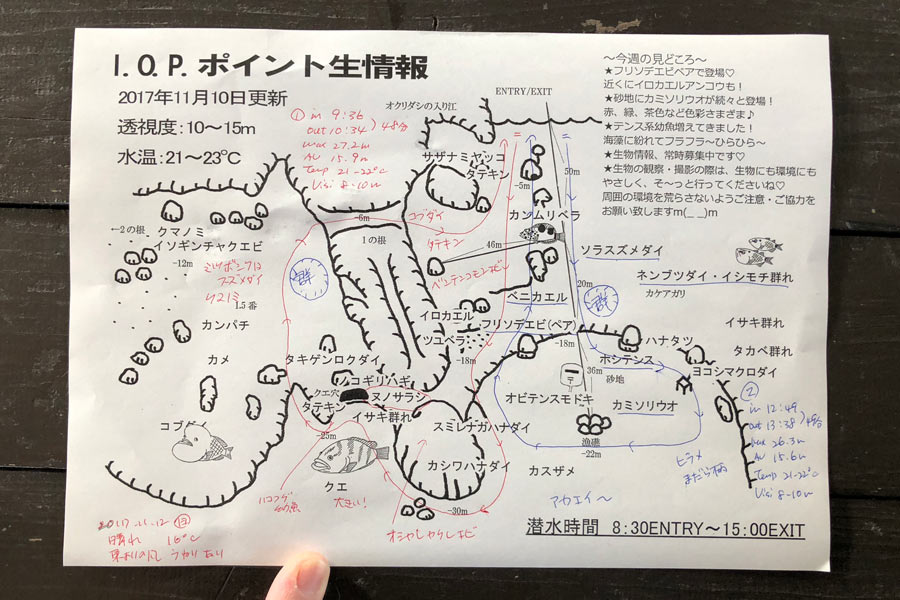 I.O.P.ポイント生情報
2017年11月10日更新
透視度:10～15m
水温:21～23℃
① in 9:36
out 10:34 ) 48分
max 27.2m
AV 15.9m
Temp 21-22℃
Visi 8-10m
オクリダシの入り江
ENTRY/EXIT
～今週の見どころ～
★フリソデエビペアで登場♡
近くにイロカエルアンコウも!
★砂地にカミソリウオが続々と登場!
赤、緑、茶色など色彩さまざま♪
★テンス系幼魚増えてきました!
海藻に紛れてフラフラ～ひらひら～
★生物情報、常時募集中です♡
★生物の観察・撮影の際は、生物にも環境にも
やさしく、そ～っと行ってくださいね♡
周囲の環境を荒らさないようご注意・ご協力を
お願い致しますm(_ _)m
サザナミヤッコ
タテキン
-5m
50m
カンムリベラ
-6m
コブダイ
タテキン
1の根
46m
←2の根
クマノミ
イソギンチャクエビ
-12m
ミツボシクロ
スズメダイ
1.5番
群
ベンテンコモンエビ
ソラスズメダイ
ネンブツダイ・イシモチ群れ
カケアガリ
20m
ベニカエル
群
イロカエル
フリソデエビ(ペア)
ツユベラ
-18m
-18m
カンパチ
カメ
タキゲンロクダイ
ハナタツ
イサキ群れ
タカベ群れ
ヨコシマクロダイ
ホシテンス
36m
砂地
ノコギリハギ
クエ穴
ヌノサラシ
タテキン
イサキ群れ
オビテンスモドキ
〒
カミソリウオ
漁礁
-22m
コブダイ
スミレナガハナダイ
カシワハナダイ
-25m
クエ
大きい!
ハコフグ
幼魚
-30m
オシャレカクレエビ
カスザメ
アカエイ～
ヒラメ
まだら柄
② in 12:49
out 13:38 ) 49分
max 26.3m
AV 15.6m
Temp 21-22℃
Visi 8-10m
潜水時間 8:30ENTRY～15:00EXIT
2017.11.12 ㊐
晴れ 16℃
うねりあり